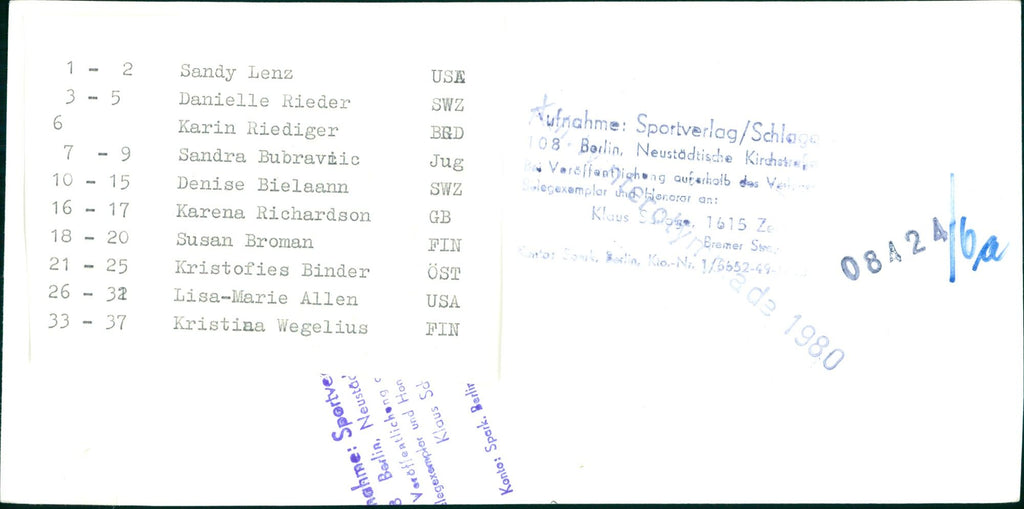 1 - 2 Sandy Lenz USA
3 - 5 Danielle Rieder SWZ
6 Karin Riediger BRD
7 - 9 Sandra Bubravčic Jug
10 - 15 Denise Bielaann SWZ
16 - 17 Karena Richardson GB
18 - 20 Susan Broman FIN
21 - 25 Kristofies Binder ÖST
26 - 32 Lisa-Marie Allen USA
33 - 37 Kristina Wegelius FIN
Aufnahme: Sportverlag/Schlage
108 Berlin, Neustädtische Kirchstraße
Bei Veröffentlichung außerhalb des
Belegexemplar und Honorar an:
Klaus 1615
Bremer
Konto: Spark. Berlin, Kto.-Nr. 1/6652-49-
1980
08424/6a
nahme: Sportve
Berlin, Neustäd
Veröffentlichung
legexemplar und Hon
Klaus Sc
Konto: Spark. Berlin